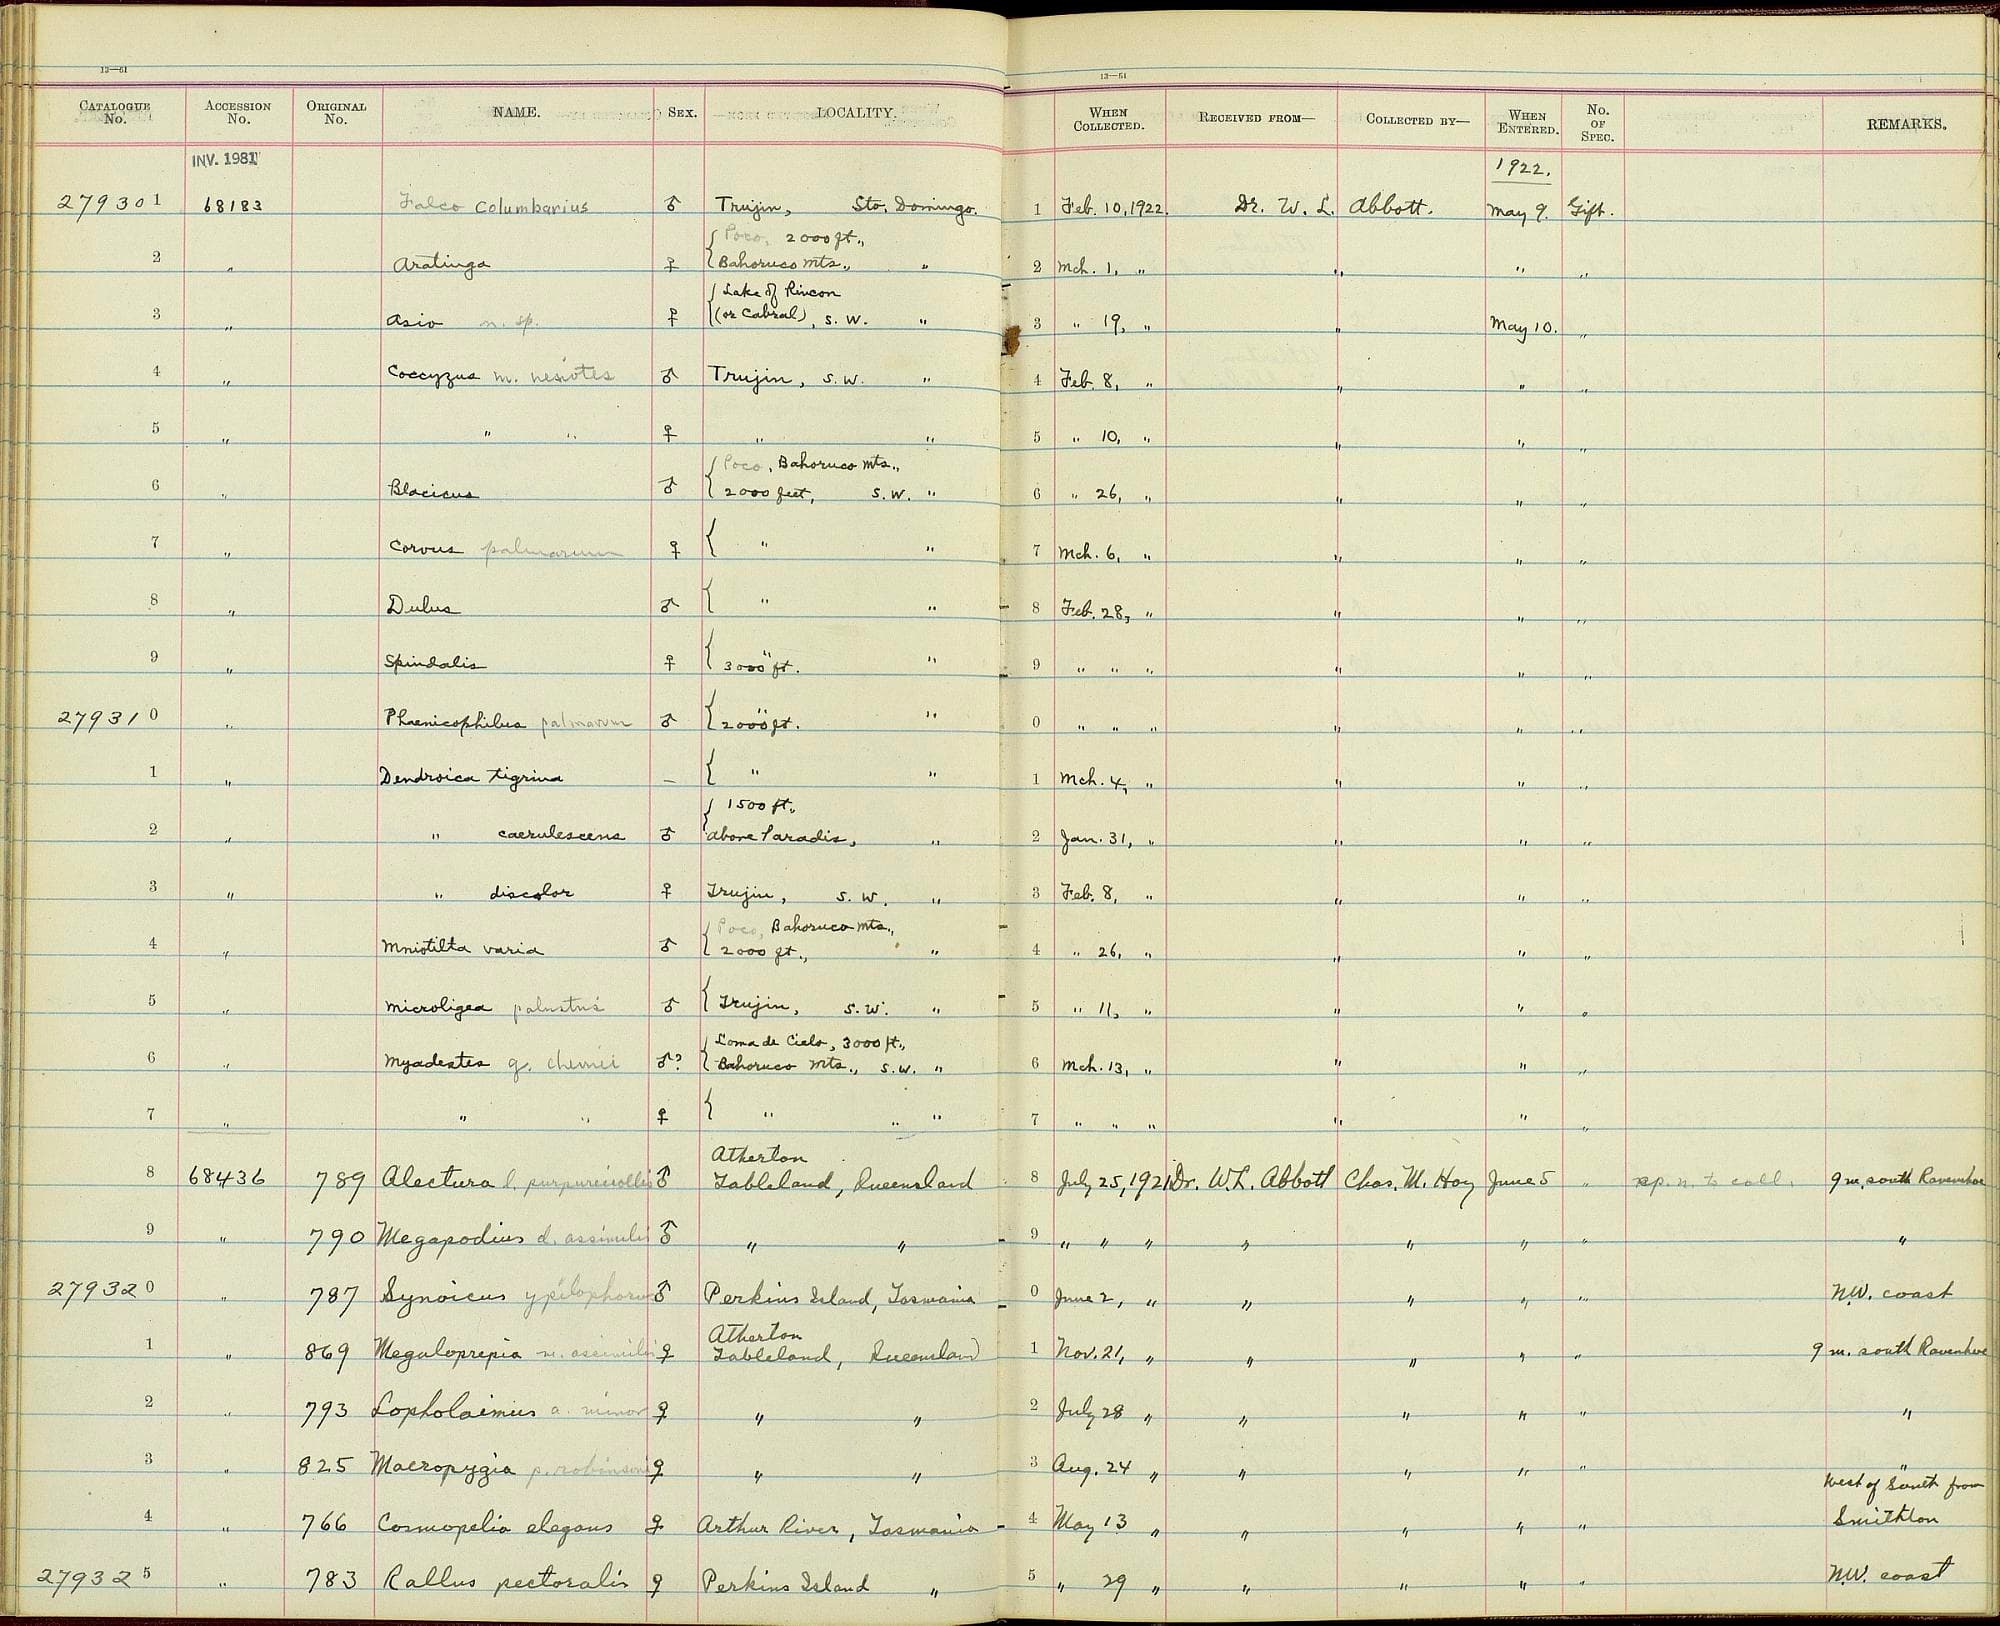 13—61
13—61
CATALOGUE No. ACCESSION No. ORIGINAL No. NAME. SEX. LOCALITY. WHEN COLLECTED. RECEIVED FROM— COLLECTED BY— WHEN ENTERED. No. OF SPEC. REMARKS.
INV. 1981 1922.
279301 68183 Falco columbarius ♂ Trujin, Sto. Domingo. 1 Feb. 10, 1922. Dr. W. L. Abbott. May 9. Gift.
{Poco, 2000 ft.,
2 " Aratinga ♀ Bahoruco Mts., " 2 Mch. 1, " " " "
{Lake of Rincon
3 " Asio n. sp. ♀ (or Cabral), S.W. " 3 " 19, " " May 10. "
4 " Coccyzus m. nesiotes ♂ Trujin, S.W. " 4 Feb. 8, " " " "
5 " " " ♀ " " 5 " 10, " " " "
{Poco, Bahoruco Mts.,
6 " Blacicus ♂ 2000 feet, S.W. " 6 " 26, " " " "
7 " Corvus palmarum ♀ { " " 7 Mch. 6, " " " "
8 " Dulus ♂ { " " 8 Feb. 28, " " " "
9 " Spindalis ♀ { " 3000 ft. " 9 " " " " " "
279310 " Phaenicophilus palmarum ♂ { " 2000 ft. " 0 " " " " " "
1 " Dendroica tigrina — { " " 1 Mch. 4, " " " "
{1500 ft.,
2 " " caerulescens ♂ above Paradis, " 2 Jan. 31, " " " "
3 " " discolor ♀ Trujin, S.W. " 3 Feb. 8, " " " "
{Poco, Bahoruco Mts.,
4 " Mniotilta varia ♂ 2000 ft., " 4 " 26, " " " "
5 " Microligea palustris ♂ {Trujin, S.W. " 5 " 11, " " " "
{Loma de Cielo, 3000 ft.,
6 " Myadestes ♂? Bahoruco Mts., S.W. " 6 Mch. 13, " " " "
7 " " " ♀ { " " " 7 " " " " " "
Atherton
8 68436 789 Alectura l. purpureicollis ♂ Tableland, Queensland 8 July 25, 1921 Dr. W. L. Abbott Chas. M. Hoy June 5 " sp. n. to coll. 9 m. south Ravenshoe
9 " 790 Megapodius d. assimilis ♂ " " 9 " " " " " " " "
279320 " 787 Synoicus ypilophorus ♂ Perkins Island, Tasmania 0 June 2, " " " " " N.W. coast
Atherton
1 " 869 Megaloprepia m. assimilis ♀ Tableland, Queensland 1 Nov. 21, " " " " " 9 m. south Ravenshoe
2 " 793 Lopholaimus a. minor ♀ " " 2 July 28 " " " " " "
3 " 825 Macropygia p. robinsoni ♀ " " 3 Aug. 24 " " " " " "
West of South from
4 " 766 Cosmopelia elegans ♀ Arthur River, Tasmania 4 May 13 " " " " " Smithton
279325 " 783 Rallus pectoralis ♀ Perkins Island " 5 " 29 " " " " " N.W. coast